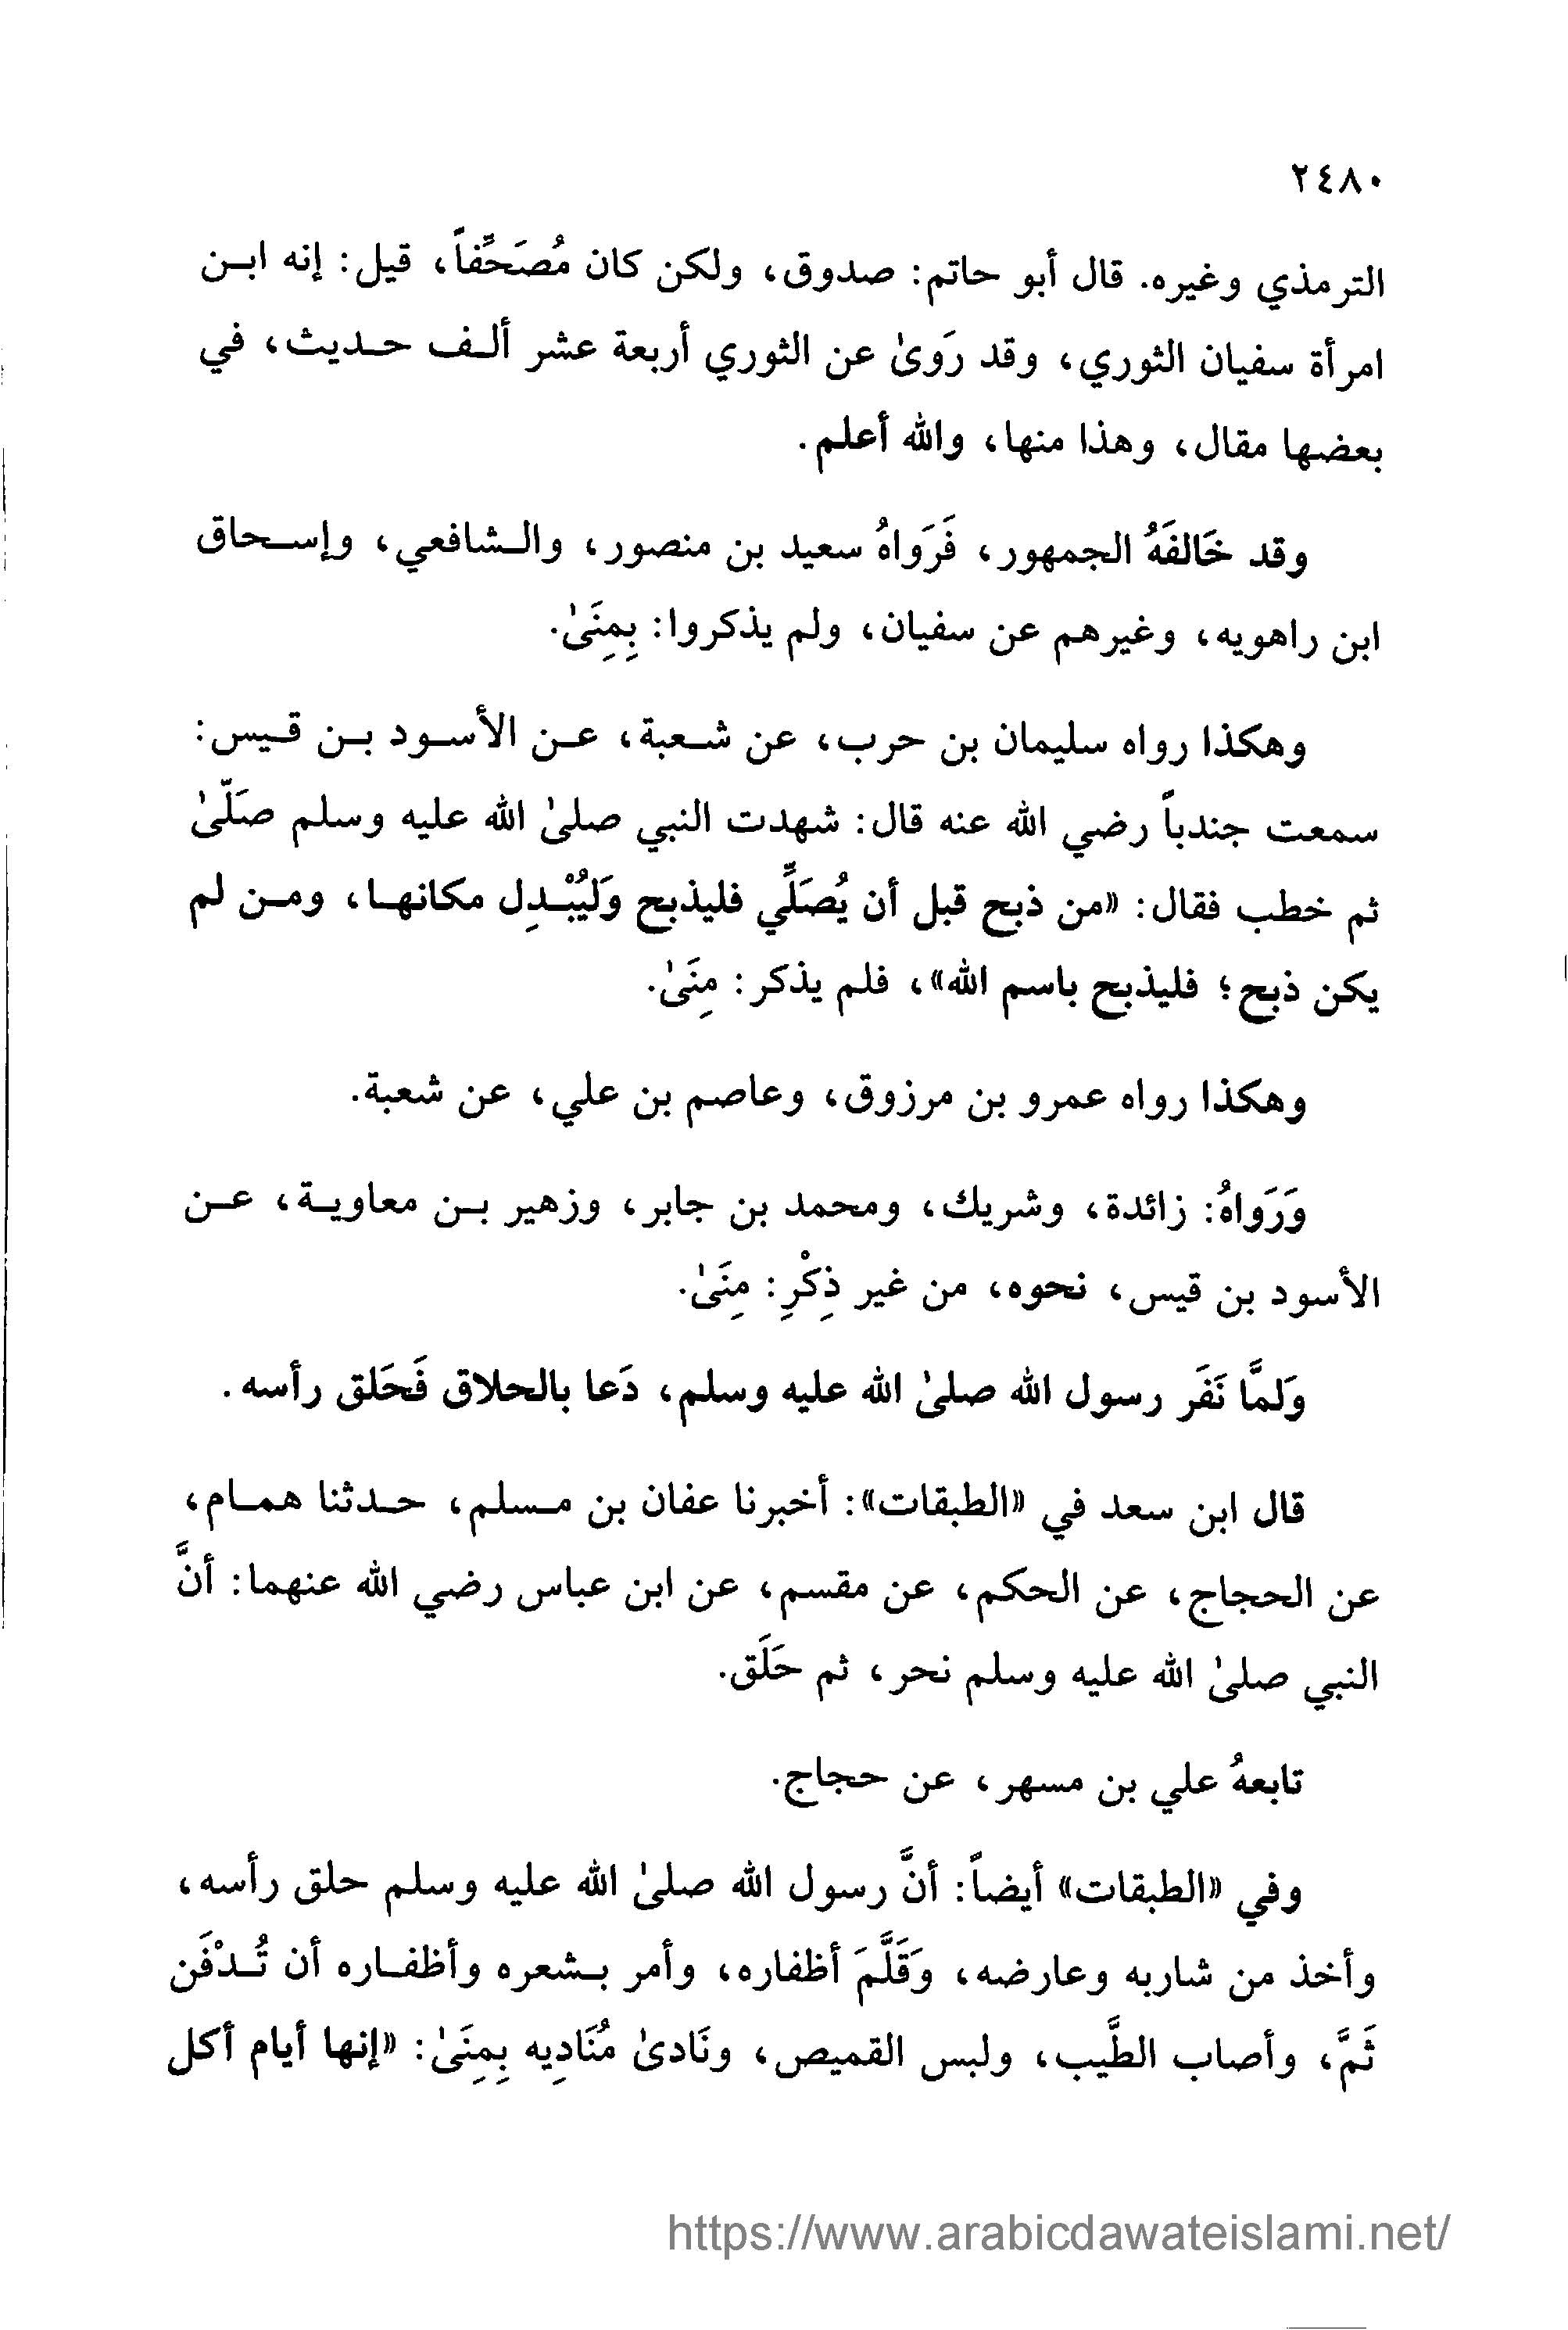 ٢٤٨٠
الترمذي وغيره. قال أبو حاتم: صدوق، ولكن كان مُصَحِّفاً، قيل: إنه ابن
امرأة سفيان الثوري، وقد رَوىٰ عن الثوري أربعة عشر ألف حديث، في
بعضها مقال، وهذا منها، والله أعلم.
وقد خَالفَهُ الجمهور، فَرَواهُ سعيد بن منصور، والشافعي، وإسحاق
ابن راهويه، وغيرهم عن سفيان، ولم يذكروا: بِمِنَىٰ.
وهكذا رواه سليمان بن حرب، عن شعبة، عن الأسود بن قيس:
سمعت جندباً رضي الله عنه قال: شهدت النبي صلىٰ الله عليه وسلم صَلَّىٰ
ثم خطب فقال: «من ذبح قبل أن يُصَلِّي فليذبح وَليُبْدِل مكانها، ومن لم
يكن ذبح؛ فليذبح باسم الله»، فلم يذكر: مِنَىٰ.
وهكذا رواه عمرو بن مرزوق، وعاصم بن علي، عن شعبة.
وَرَواهُ: زائدة، وشريك، ومحمد بن جابر، وزهير بن معاوية، عن
الأسود بن قيس، نحوه، من غير ذِكْرِ: مِنَىٰ.
وَلمَّا نَفَر رسول الله صلىٰ الله عليه وسلم، دَعا بالحلاق فَحَلق رأسه.
قال ابن سعد في «الطبقات»: أخبرنا عفان بن مسلم، حدثنا همام،
عن الحجاج، عن الحكم، عن مقسم، عن ابن عباس رضي الله عنهما: أنَّ
النبي صلىٰ الله عليه وسلم نحر، ثم حَلَق.
تابعهُ علي بن مسهر، عن حجاج.
وفي «الطبقات» أيضاً: أنَّ رسول الله صلىٰ الله عليه وسلم حلق رأسه،
وأخذ من شاربه وعارضه، وَقَلَّمَ أظفاره، وأمر بشعره وأظفاره أن تُدْفَن
ثَمَّ، وأصاب الطَّيب، ولبس القميص، ونَادىٰ مُنَادِيه بِمِنَىٰ: «إنها أيام أكل
https://www.arabicdawateislami.net/